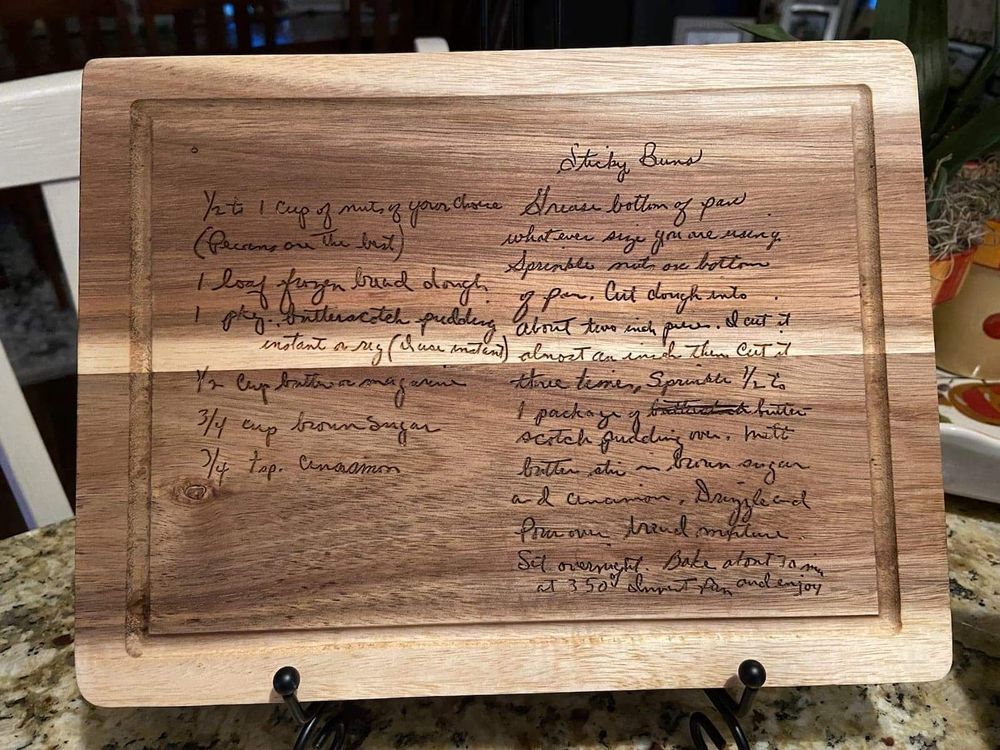 Sticky Buns
1/2 to 1 cup of nuts of your choice
(Pecans are the best)
1 loaf frozen bread dough
1 pkg. butterscotch pudding
instant or reg (I use instant)
1/2 cup butter or magarine
3/4 cup brown sugar
3/4 tsp. cinnamon
Grease bottom of pan
whatever size you are using.
Sprinkle nuts on bottom
of pan. Cut dough into
about two inch pieces. I cut it
almost an inch then cut it
three times, Sprinkle 1/2 to
1 package of butter
scotch pudding over. Melt
butter stir in brown sugar
and cinnamon. Drizzle and
Pour over bread mixture.
Set overnight. Bake about 30 min
at 350° Invert Pan and enjoy